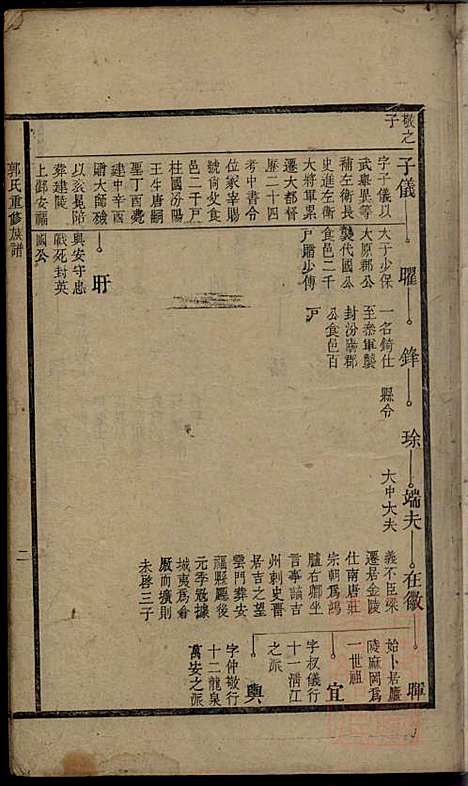 敬之子
子儀
字子儀以
武舉異等
補左衛長
史進左衛
大將軍累
遷大都督
歷二十四
考中書令
位冢宰賜
號尚父食
邑二千戶
柱國汾陽
王生唐嗣
聖丁酉薨
建中辛酉
贈大師
以衮冕陪
葬建陵
上鄉安福
曜
大子少保
太原郡公
襲代國公
食邑二千
戶贈少傅
旰
與安守忠
戰死封英
國公
鋒
一名錡仕
至叅軍襲
封汾陽郡
公食邑百
戶
琮
縣令
端夫
大中大夫
在徽
義不臣梁
遷居金陵
仕南唐莊
宗朝爲鴻
臚右卿坐
言事謫吉
州刺史晉
居吉之望
雲門葬安
福縣驛後
元季冦據
城夷爲倉
厫而壙則
未啓三子
暉
始卜居廬
陵麻岡爲
一世祖
宜
字权儀行
十一淸江
之派
輿
字仲敬行
十二龍泉
萬安之派
郭氏重修族譜
二